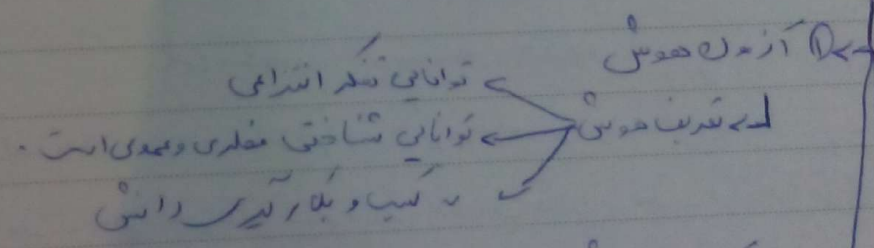 ① آزمون هوش
تعریف هوش
توانایی تفکر انتزاعی
توانایی شناختی فطری و عمومی است.
〃 کسب و بکارگیری دانش